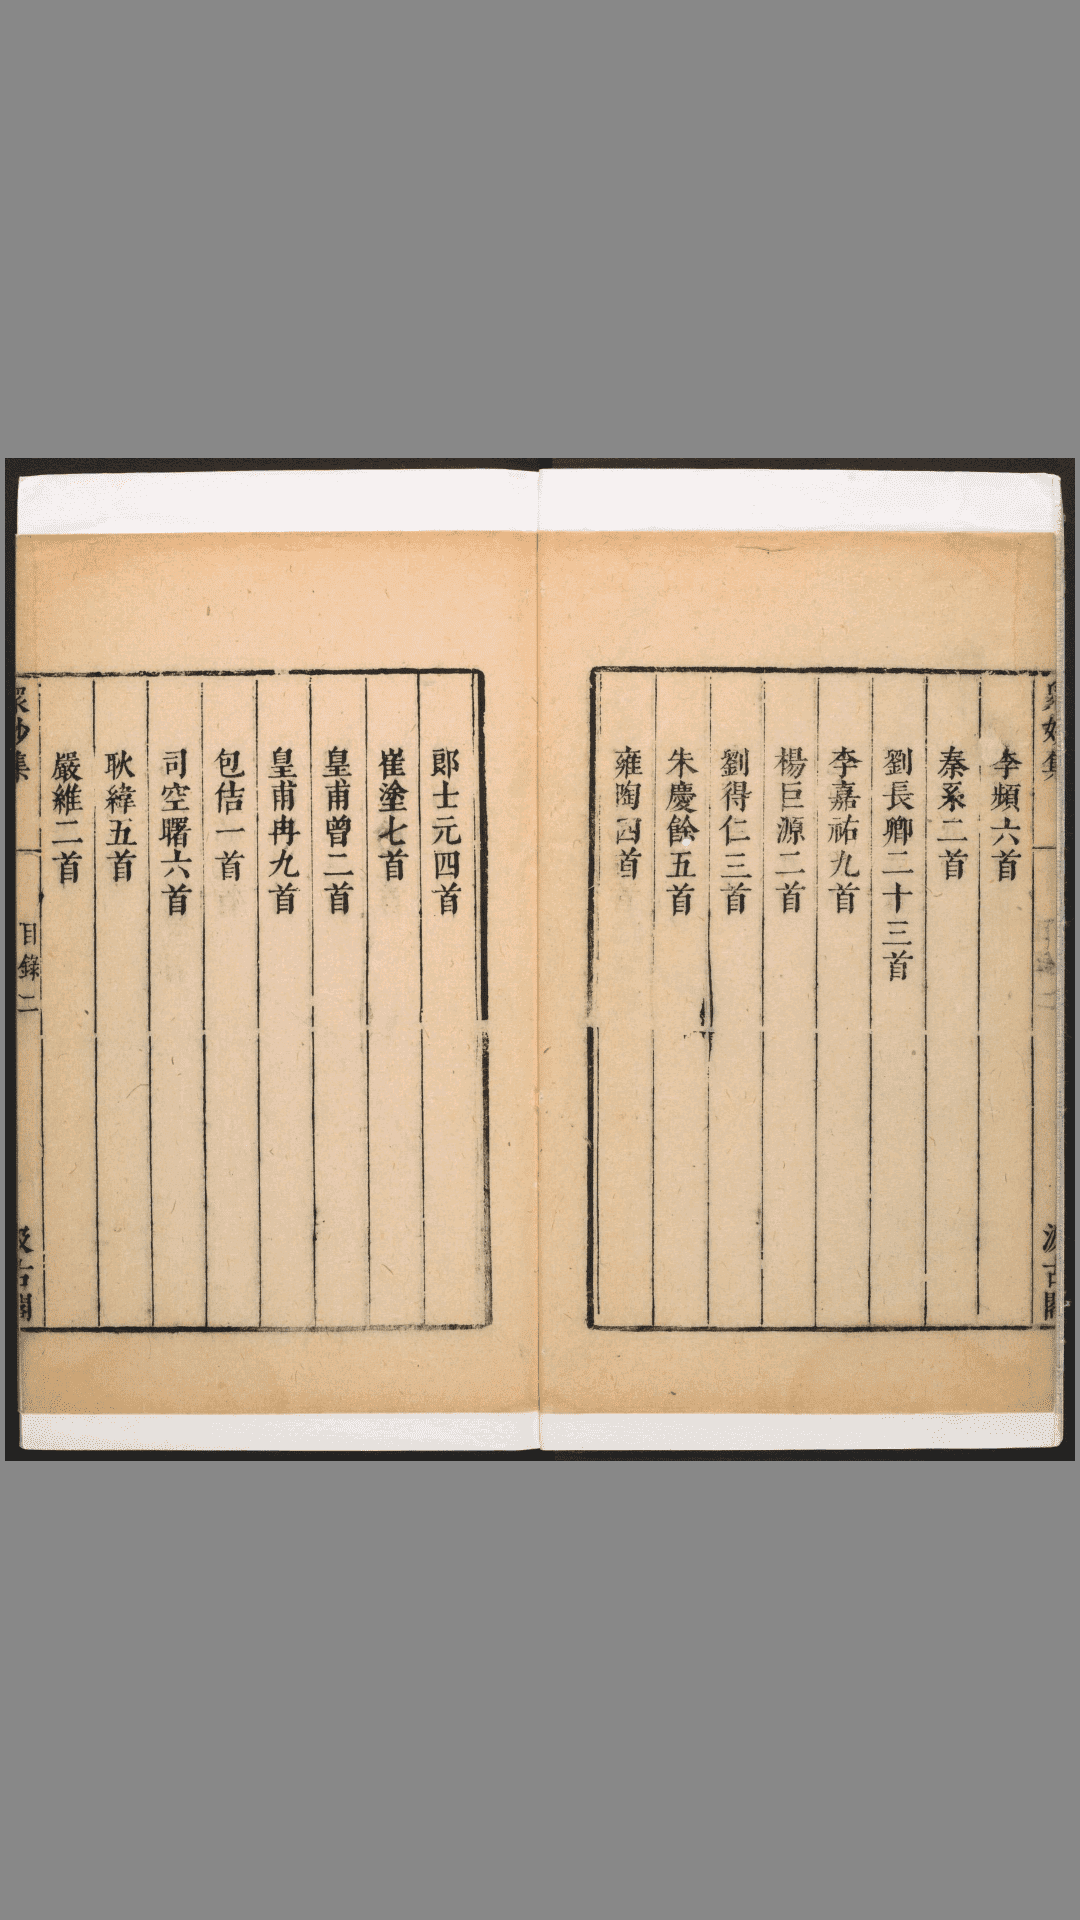 李頻六首
秦系二首
劉長卿二十三首
李嘉祐九首
楊巨源二首
劉得仁三首
朱慶餘五首
雍陶四首
郎士元四首
崔塗七首
皇甫曾二首
皇甫冉九首
包佶一首
司空曙六首
耿緯五首
嚴維二首
衆妙集
目錄二
汲古閣